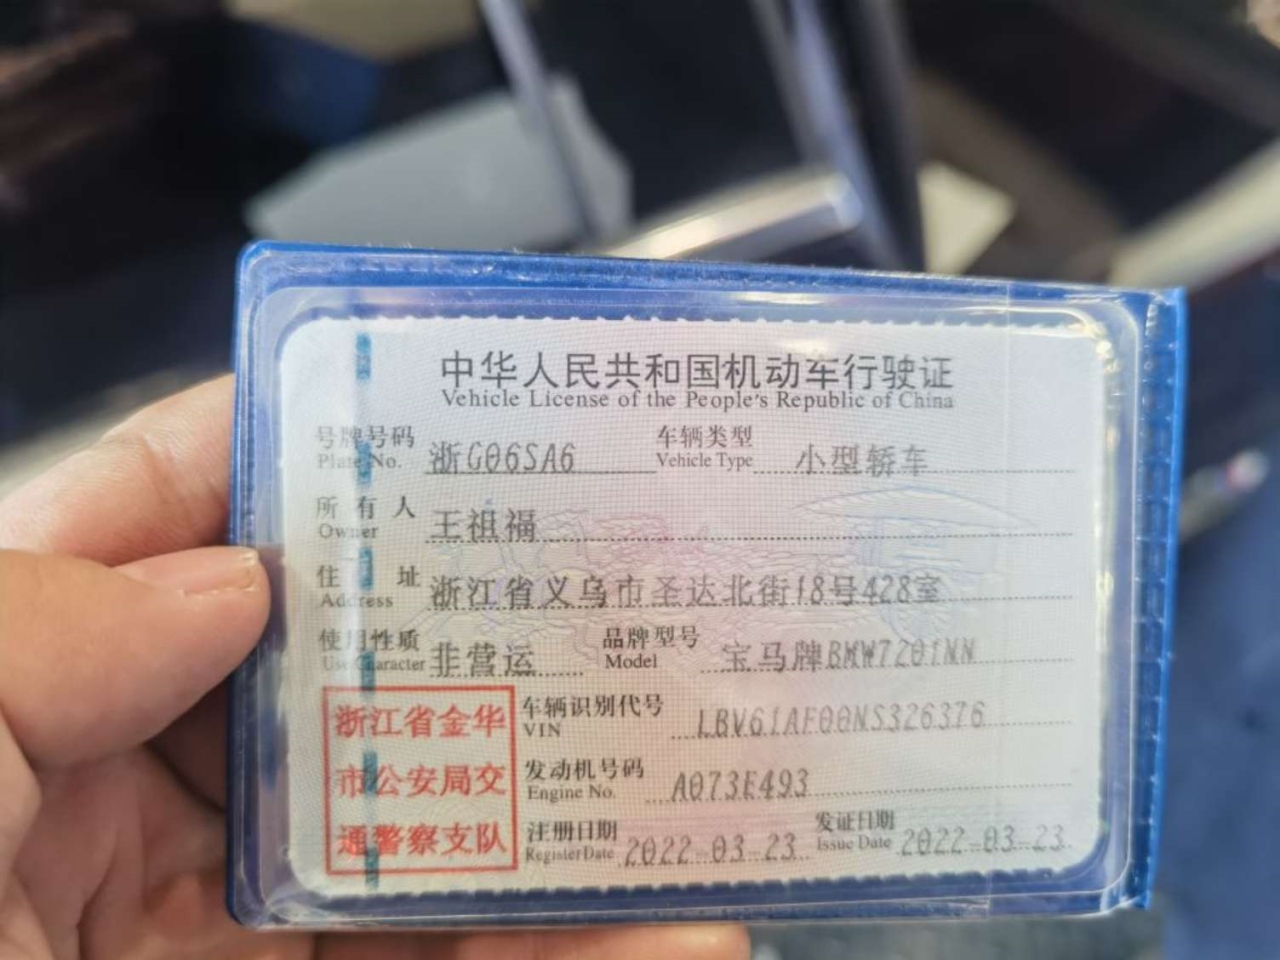 中华人民共和国机动车行驶证
Vehicle License of the People's Republic of China
号牌号码 浙G06SA6 车辆类型 小型轿车
Plate No. Vehicle Type
所有人 王祖福
Owner
住址 浙江省义乌市圣达北街18号428室
Address
使用性质 非营运 品牌型号 宝马牌BMW7201NN
Use Character Model
浙江省金华
市公安局交
通警察支队
车辆识别代号 LBV61AF00NS326376
VIN
发动机号码 A073E493
Engine No.
注册日期 2022-03-23 发证日期 2022-03-23
Register Date Issue Date